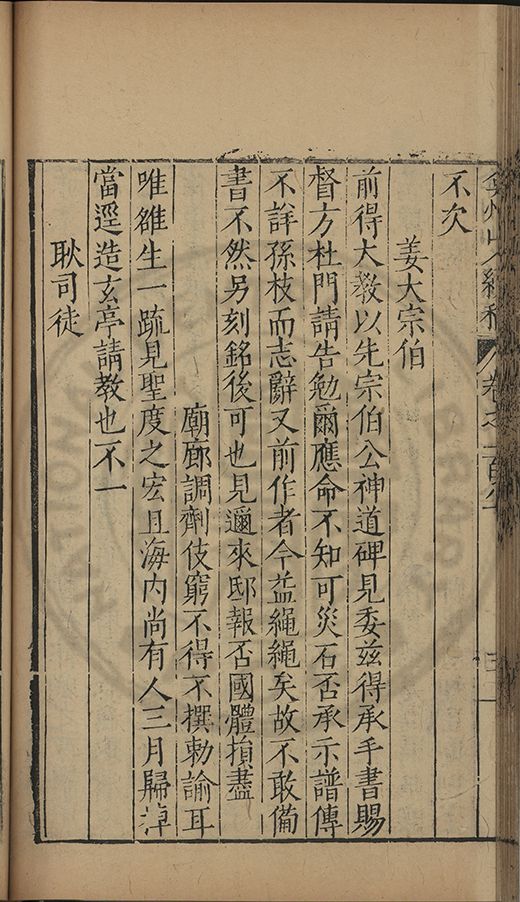 弇州山人續稿 卷之一百八十
不次
姜大宗伯
前得大教以先宗伯公神道碑見委兹得承手書賜
督方杜門請告勉爾應命不知可災石否承示譜傳
不詳孫枝而志辭又前作者今益繩繩矣故不敢備
書不然另刻銘後可也見邇來邸報否國體損盡
廟廊調劑伎窮不得不撰勅諭耳
唯雒生一疏見聖度之宏且海内尚有人三月歸蓴
當逕造玄亭請教也不一
耿司徒